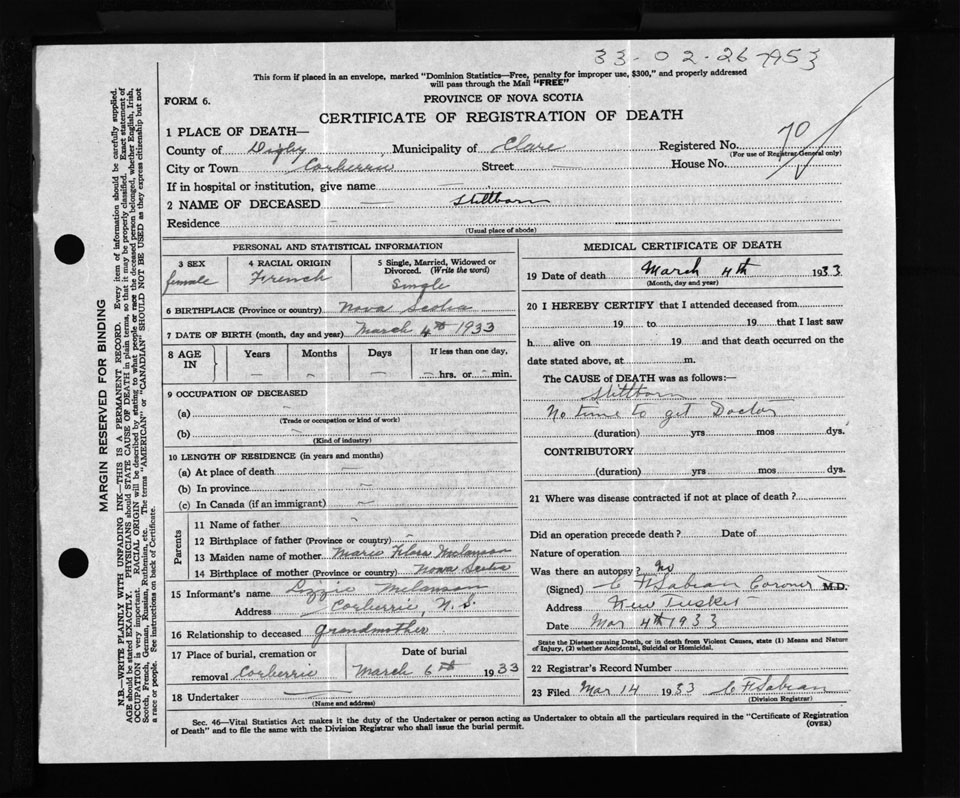 33-02-26753
This form if placed in an envelope, marked "Dominion Statistics—Free, penalty for improper use, $300," and properly addressed
will pass through the Mail "FREE"
FORM 6.
PROVINCE OF NOVA SCOTIA
CERTIFICATE OF REGISTRATION OF DEATH
1 PLACE OF DEATH—
County of Digby Municipality of Clare Registered No. 70
(For use of Registrar General only)
City or Town Corberrie Street House No.
If in hospital or institution, give name
2 NAME OF DECEASED — Stillborn
Residence —
(Usual place of abode)
PERSONAL AND STATISTICAL INFORMATION
3 SEX female
4 RACIAL ORIGIN French
5 Single, Married, Widowed or Divorced. (Write the word) Single
6 BIRTHPLACE (Province or country) Nova Scotia
7 DATE OF BIRTH (month, day and year) March 4th 1933
8 AGE IN
Years — Months — Days —
If less than one day, — hrs. or — min.
9 OCCUPATION OF DECEASED
(a) —
(Trade or occupation or kind of work)
(b)
(Kind of industry)
10 LENGTH OF RESIDENCE (in years and months)
(a) At place of death —
(b) In province —
(c) In Canada (if an immigrant) —
Parents
11 Name of father
12 Birthplace of father (Province or country) —
13 Maiden name of mother Marie Melanson
14 Birthplace of mother (Province or country) Nova Scotia
15 Informant's name Lizzie Melanson
Address Corberrie, N.S.
16 Relationship to deceased grandmother
17 Place of burial, cremation or removal Corberrie
Date of burial March 6th 1933
18 Undertaker —
(Name and address)
MEDICAL CERTIFICATE OF DEATH
19 Date of death March 4th 1933
(Month, day and year)
20 I HEREBY CERTIFY that I attended deceased from
19 to 19 that I last saw
h alive on 19 and that death occurred on the
date stated above, at m.
The CAUSE of DEATH was as follows:—
Stillborn
No time to get Doctor
(duration) yrs mos dys.
CONTRIBUTORY
(duration) yrs mos dys.
21 Where was disease contracted if not at place of death?
Did an operation precede death? Date of
Nature of operation
Was there an autopsy? No
(Signed) C F Sabean Coroner M.D.
Address New Tusket
Date Mar 4th 1933
State the Disease causing Death, or in death from Violent Causes, state (1) Means and Nature
of Injury, (2) whether Accidental, Suicidal or Homicidal.
22 Registrar's Record Number
23 Filed Mar 14 1933 C F Sabean
(Division Registrar)
Sec. 46—Vital Statistics Act makes it the duty of the Undertaker or person acting as Undertaker to obtain all the particulars required in the "Certificate of Registration
of Death" and to file the same with the Division Registrar who shall issue the burial permit.
(OVER)
MARGIN RESERVED FOR BINDING
N.B.—WRITE PLAINLY WITH UNFADING INK—THIS IS A PERMANENT RECORD. Every item of information should be carefully supplied.
AGE should be stated EXACTLY. PHYSICIANS should STATE CAUSE OF DEATH in plain terms, so that it may be properly classified. Exact statement of
OCCUPATION is very important. RACIAL ORIGIN will be described by stating to what people or race the deceased person belonged, whether English, Irish,
Scotch, French, German, Russian, Ruthenian, etc. The terms "AMERICAN" or "CANADIAN" SHOULD NOT BE USED as they express citizenship but not
a race or people. See instructions on back of Certificate.